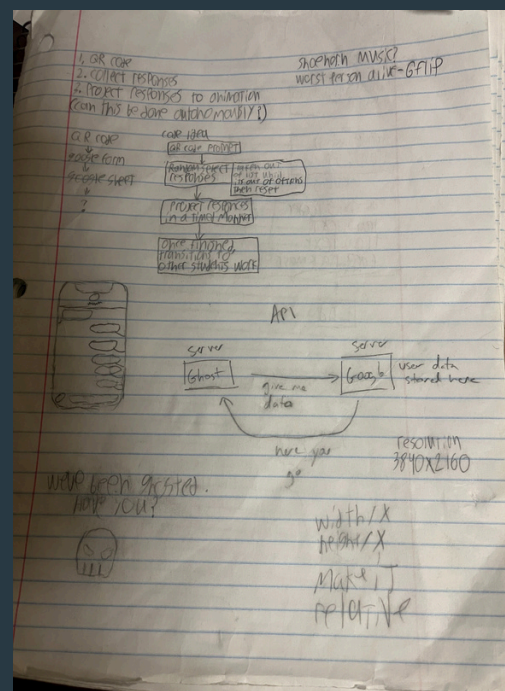 1. QR code
2. Collect responses
3. Project responses to animation
(can this be done autonomously?)
shoehorn MUSIC?
worst person alive - GFlip
QR code
google form
google sheet
?
code idea
QR code prompt
Random select
responses
Project responses
in a timed manner
once finished
transition to
other students work
API
server
Ghost
give me
data
server
Google
user data
stored here
here you
go
resolution
3840x2160
we've been ghosted.
have you?
width/X
height/X
Make it
relative